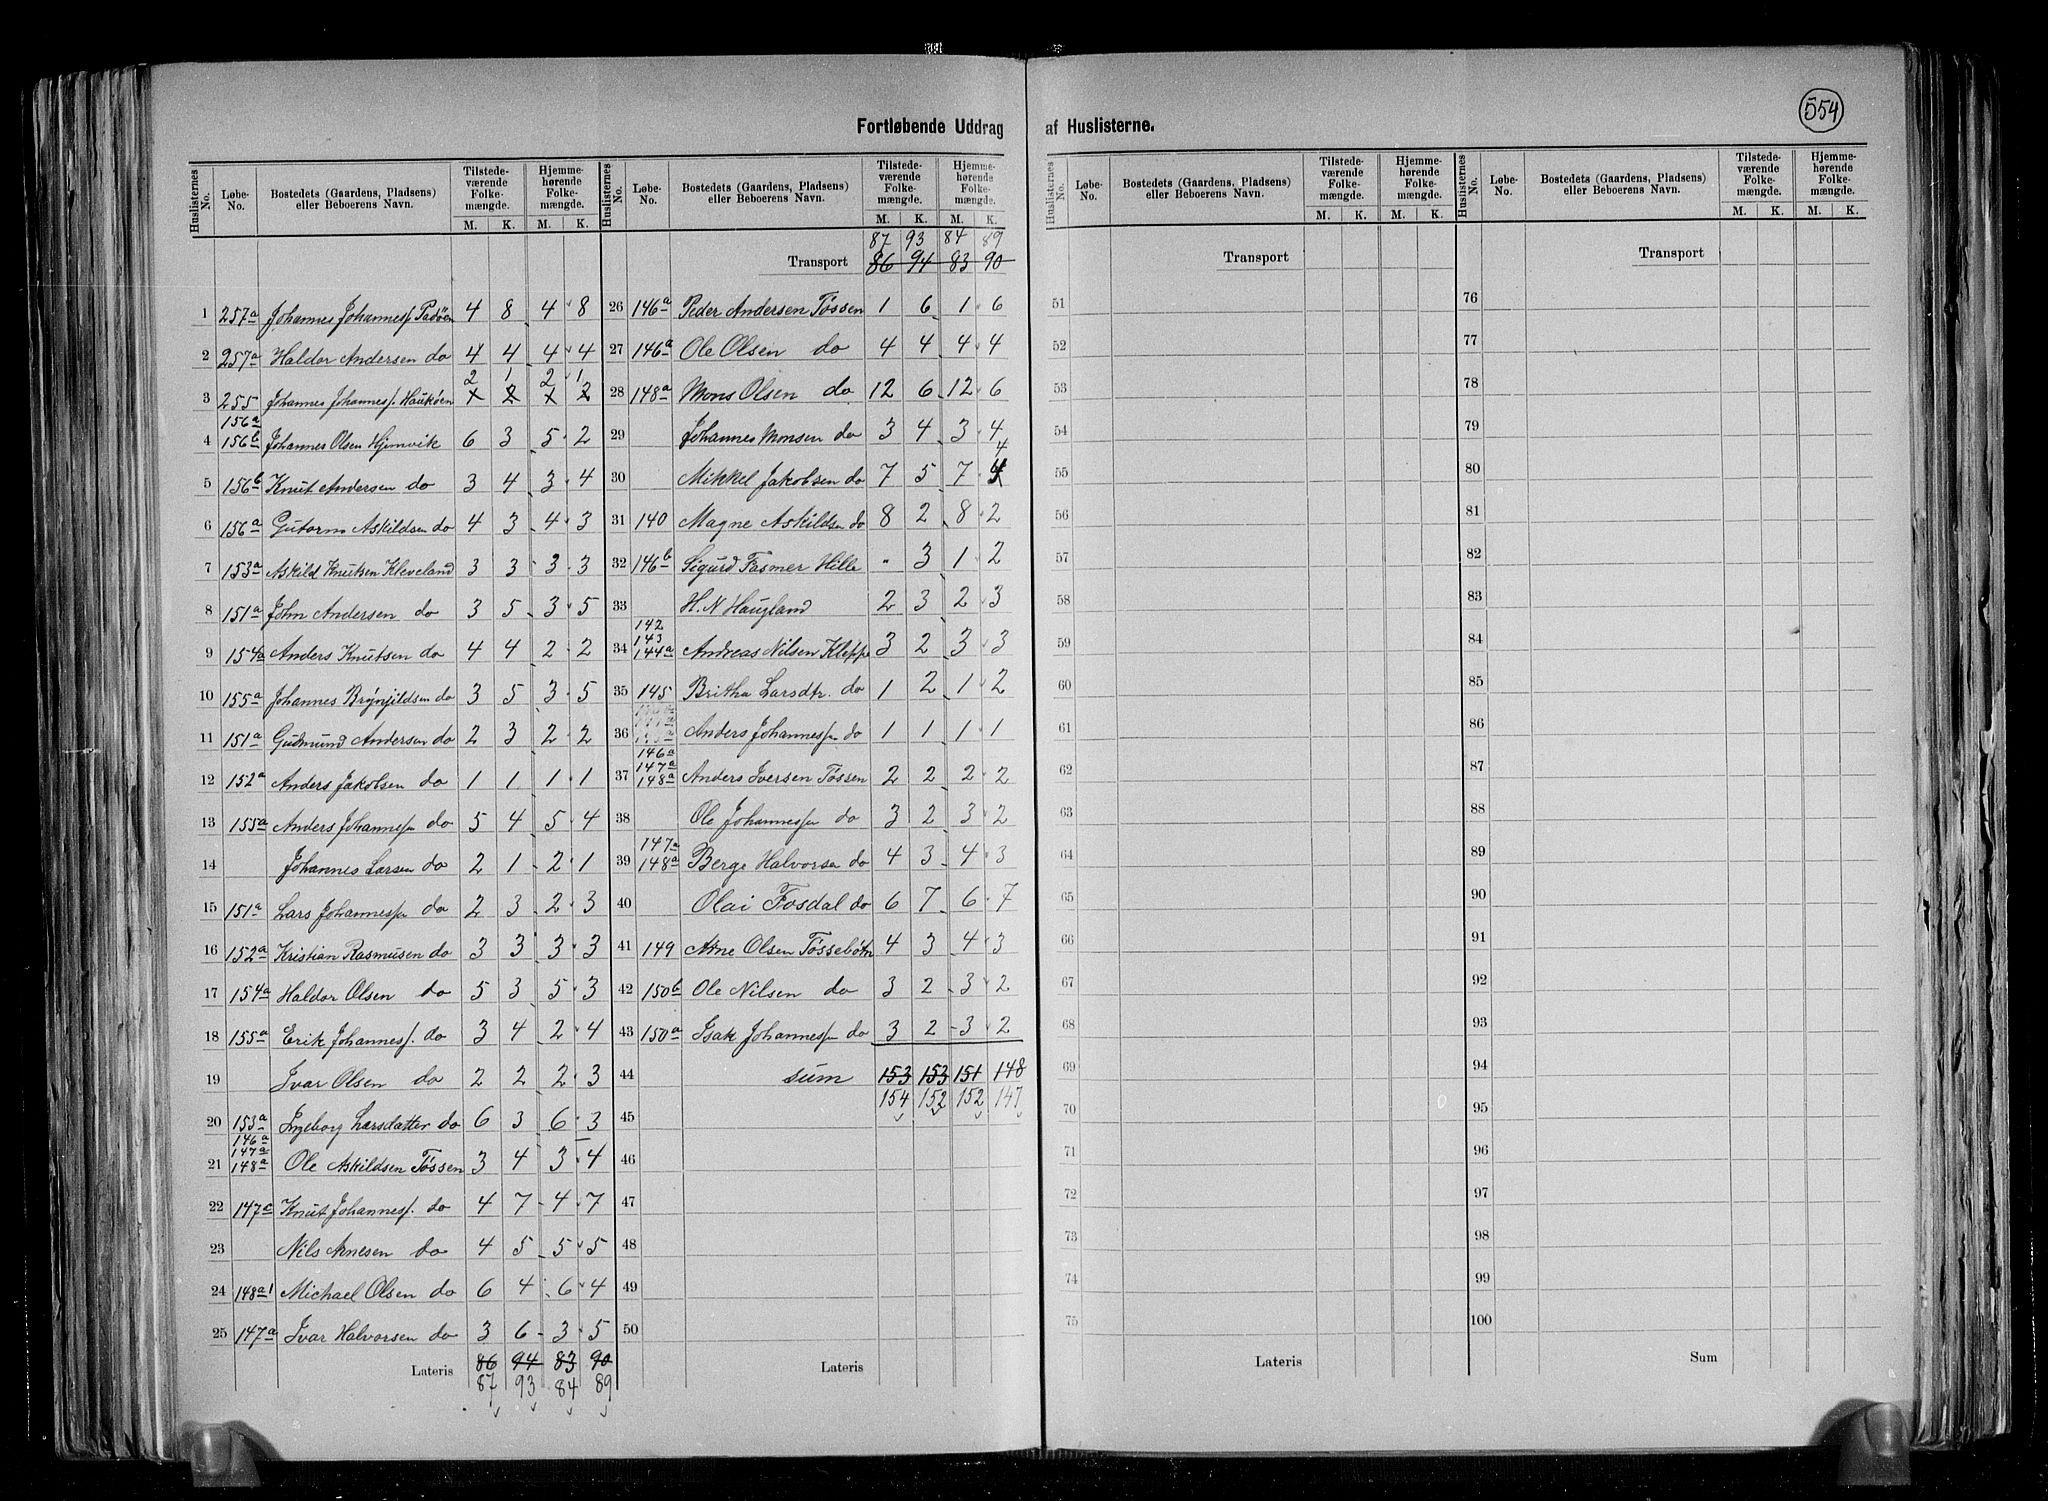 Fortløbende Uddrag af Huslisterne.
554
Huslisternes No. Løbe-No. Bostedets (Gaardens, Pladsens) eller Beboerens Navn. Tilstedeværende Folkemængde. Hjemmehørende Folkemængde.
M. K. M. K.
1 257a Johannes Johannesf. Padøen 4 8 4 8
2 257a Haldor Andersen do 4 4 4 4
2 1 2 1
3 255 Johannes Johannesf. Haukøen 1 2 1 2
156a
4 156b Johannes Olsen Hjemvik 6 3 5 2
5 156b Knut Andersen do 3 4 3 4
6 156a Gutorm Askildsen do 4 3 4 3
7 153a Askild Knutsen Kleveland 3 3 3 3
8 151a John Andersen do 3 5 3 5
9 154a Anders Knutsen do 4 4 2 2
10 155a Johannes Brynjildsen do 3 5 3 5
11 151a Gudmund Andersen do 2 3 2 2
12 152a Anders Jakobsen do 1 1 1 1
13 155a Anders Johannesfen do 5 4 5 4
14 Johannes Larsen do 2 1 2 1
15 151a Lars Johannesfen do 2 3 2 3
16 152a Kristian Rasmusen do 3 3 3 3
17 154a Haldor Olsen do 5 3 5 3
18 155a Erik Johannesf. do 3 4 2 4
19 Ivar Olsen do 2 2 2 3
20 153a Ingeborg Larsdatter do 6 3 6 3
146a
147a
21 148a Ole Askildsen Tøssen 3 4 3 4
22 147a Knut Johannesf. do 4 7 4 7
23 Nils Arnesen do 4 5 5 5
24 148a1 Michael Olsen do 6 4 6 4
25 147a Ivar Halvorsen do 3 6 3 5
Lateris 86 94 83 90
87 93 84 89
Huslisternes No. Løbe-No. Bostedets (Gaardens, Pladsens) eller Beboerens Navn. Tilstedeværende Folkemængde. Hjemmehørende Folkemængde.
M. K. M. K.
87 93 84 89
Transport 86 94 83 90
26 146a Peder Andersen Tøssen 1 6 1 6
27 146a Ole Olsen do 4 4 4 4
28 148a Mons Olsen do 12 6 12 6
29 Johannes Monsen do 3 4 3 4
4
30 Mikkel Jakobsen do 7 5 7
31 140 Magne Askildsen do 8 2 8 2
32 146b Sigurd Fasmer Hille " 3 1 2
33 H. N Haugland 2 3 2 3
142
143
34 144a Andreas Nilsen Kleppe 3 2 3 3
35 145 Britha Larsdtr. do 1 2 1 2
36 Anders Johannesfen do 1 1 1 1
146a
147a
37 148a Anders Iversen Tøssen 2 2 2 2
38 Ole Johannesfen do 3 2 3 2
147a
39 148a Berge Halvorsen do 4 3 4 3
40 Olai Fosdal do 6 7 6 7
41 149 Arne Olsen Tøssebotn 4 3 4 3
42 150b Ole Nilsen do 3 2 3 2
43 150a Isak Johannesfen do 3 2 3 2
44 sum 153 153 151 148
154 152 152 147
45
46
47
48
49
50
Lateris
Huslisternes No. Løbe-No. Bostedets (Gaardens, Pladsens) eller Beboerens Navn. Tilstedeværende Folkemængde. Hjemmehørende Folkemængde.
M. K. M. K.
Transport
51
52
53
54
55
56
57
58
59
60
61
62
63
64
65
66
67
68
69
70
71
72
73
74
75
Lateris
Huslisternes No. Løbe-No. Bostedets (Gaardens, Pladsens) eller Beboerens Navn. Tilstedeværende Folkemængde. Hjemmehørende Folkemængde.
M. K. M. K.
Transport
76
77
78
79
80
81
82
83
84
85
86
87
88
89
90
91
92
93
94
95
96
97
98
99
100
Sum